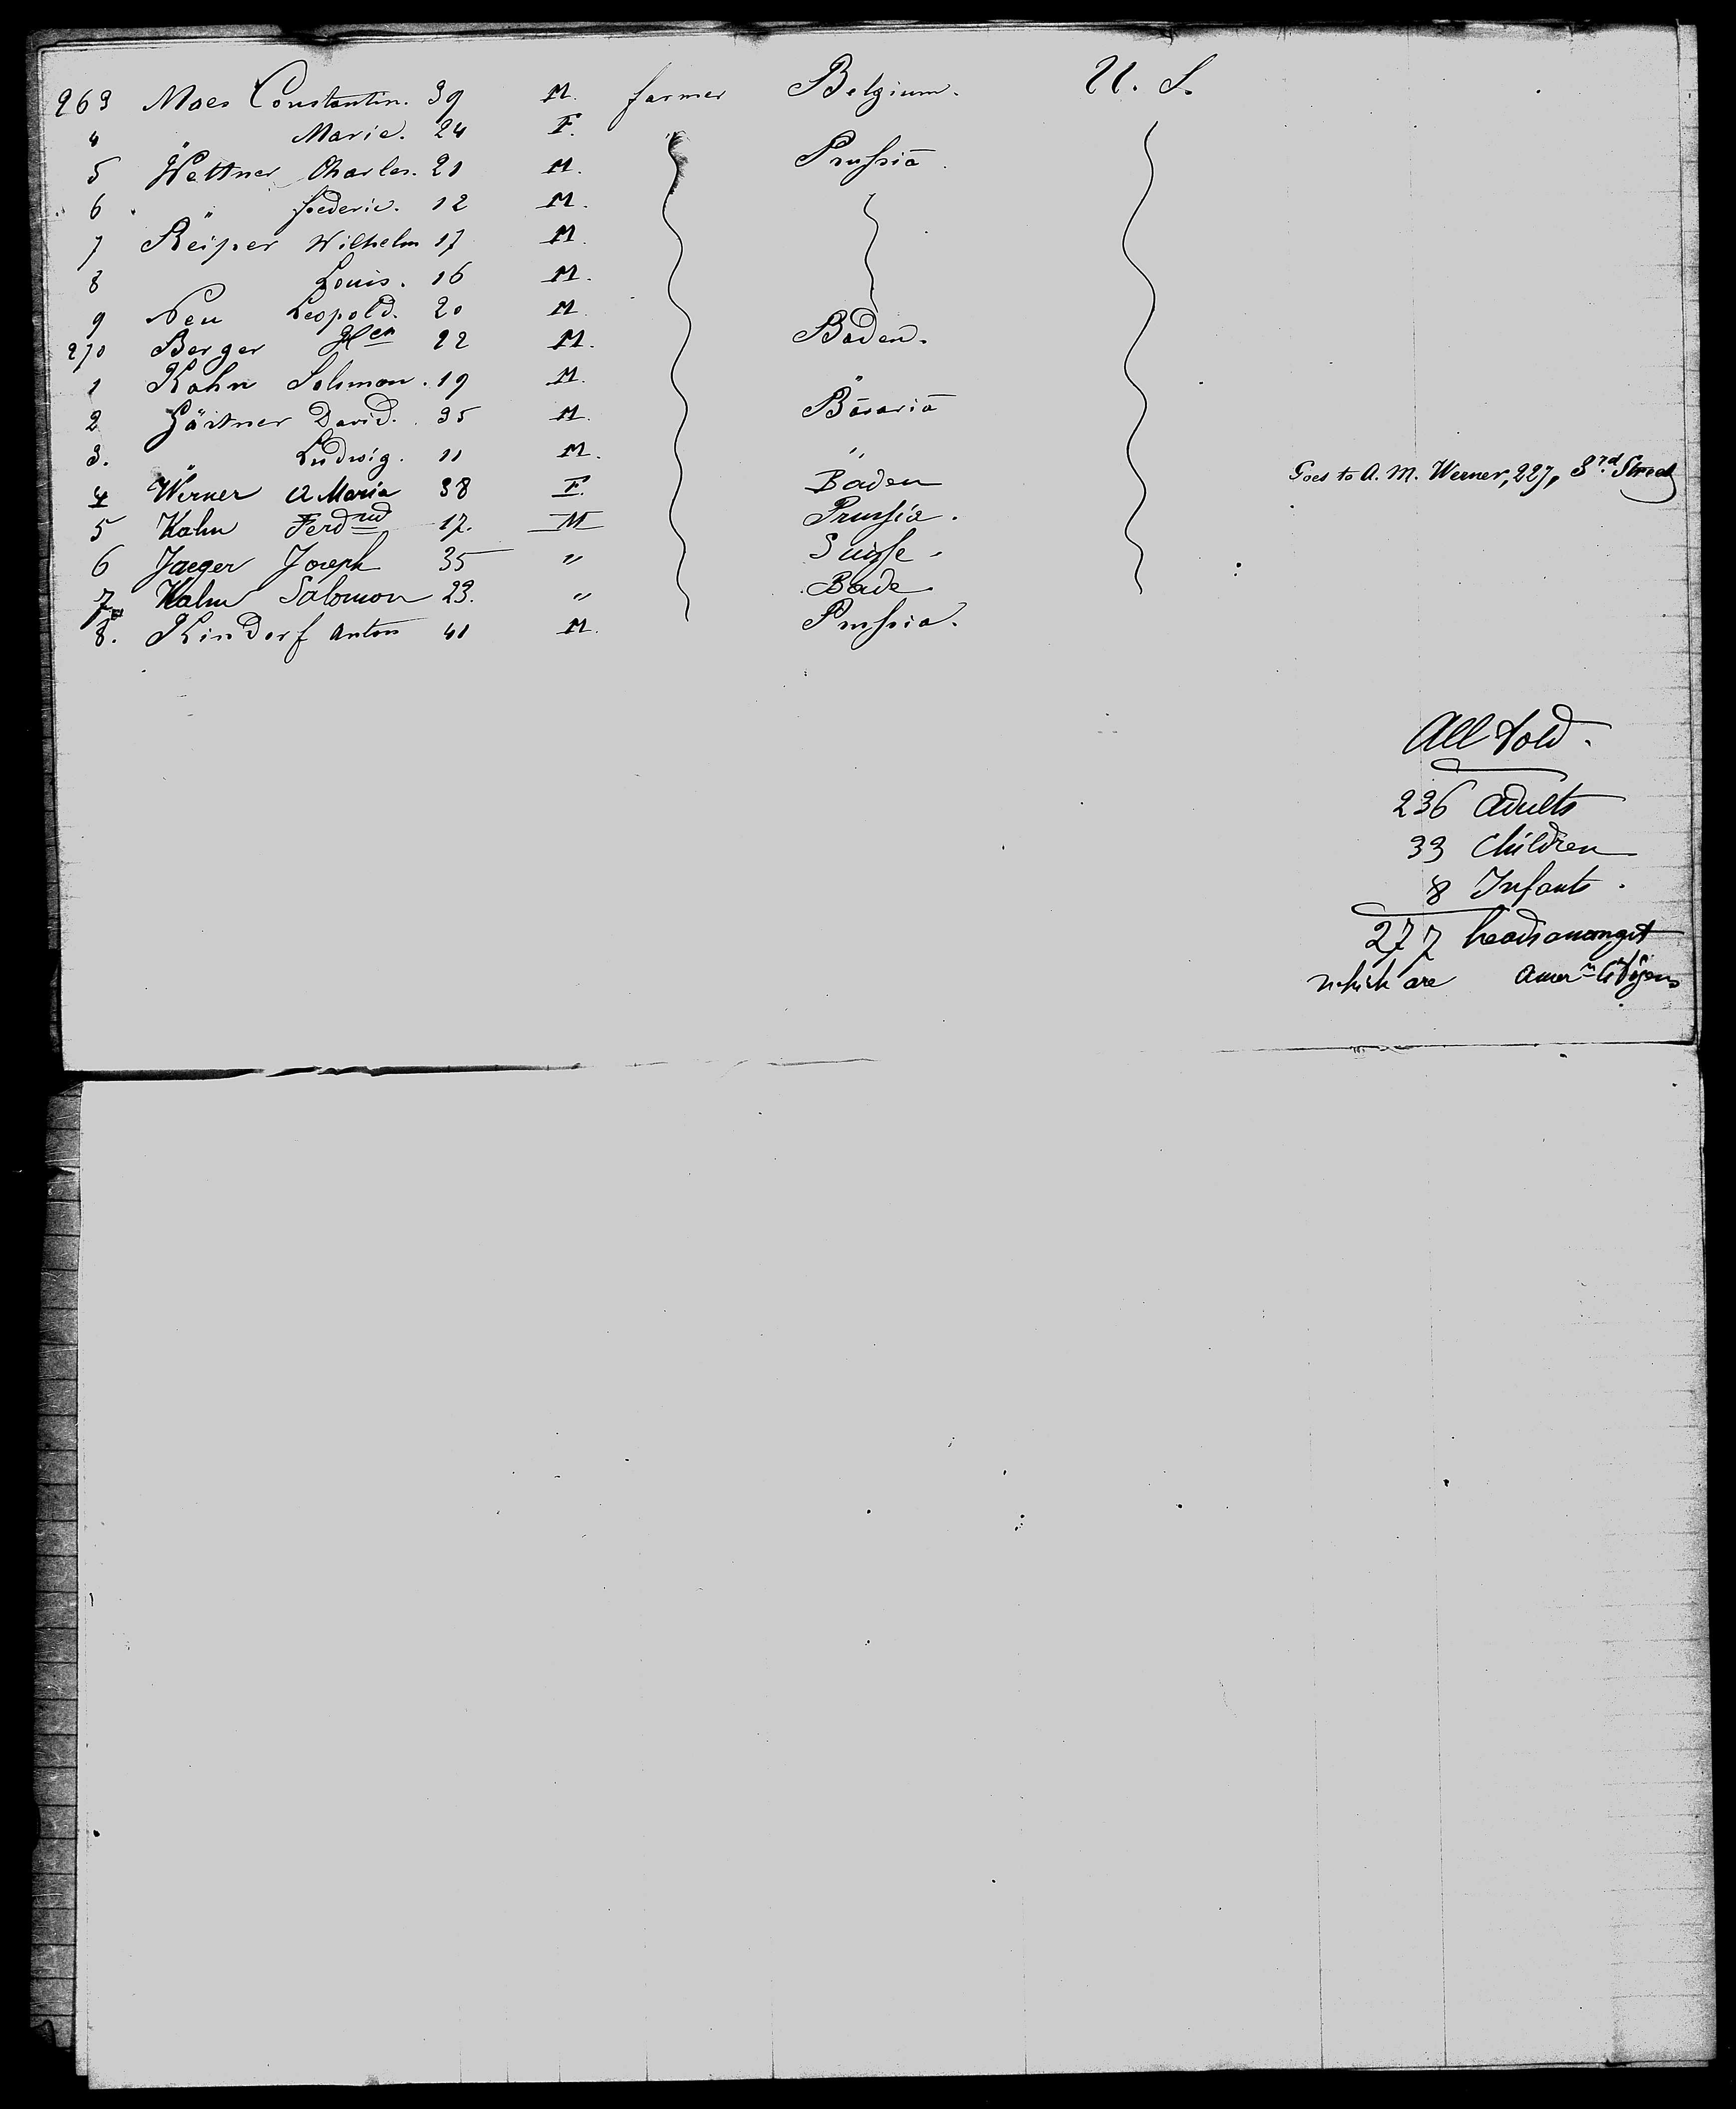 263 Maes Constantin. 39 M. farmer Belgium. U. S.
4 " Marie. 24 F.
5 Wettner Charles. 21 M. Prussia
6 " frederic. 12 M.
7 Reiper Wilhelm 17 M.
8 Louis. 16 M.
9 Neu Leopold. 20 M.
270 Berger 22 M. Baden.
1 Kahn Solomon. 19 M. "
2 Gärtner David. 35 M. Bavaria
3. " Ludwig. 11 M. "
4 Werner A Maria 38 F. Baden Goes to A. M. Werner, 227, 3rd Street
5 Kahn Ferdnd 17. M Prussia.
6 Jaeger Joseph 35 " Suisse.
7 Kahn Salomon 23. " Bade
8. Kindorf Anton 41 M. Prussia.
All told.
236 Adults
33 Children
8 Infants.
277 heads amongst
which are Amern Citizens